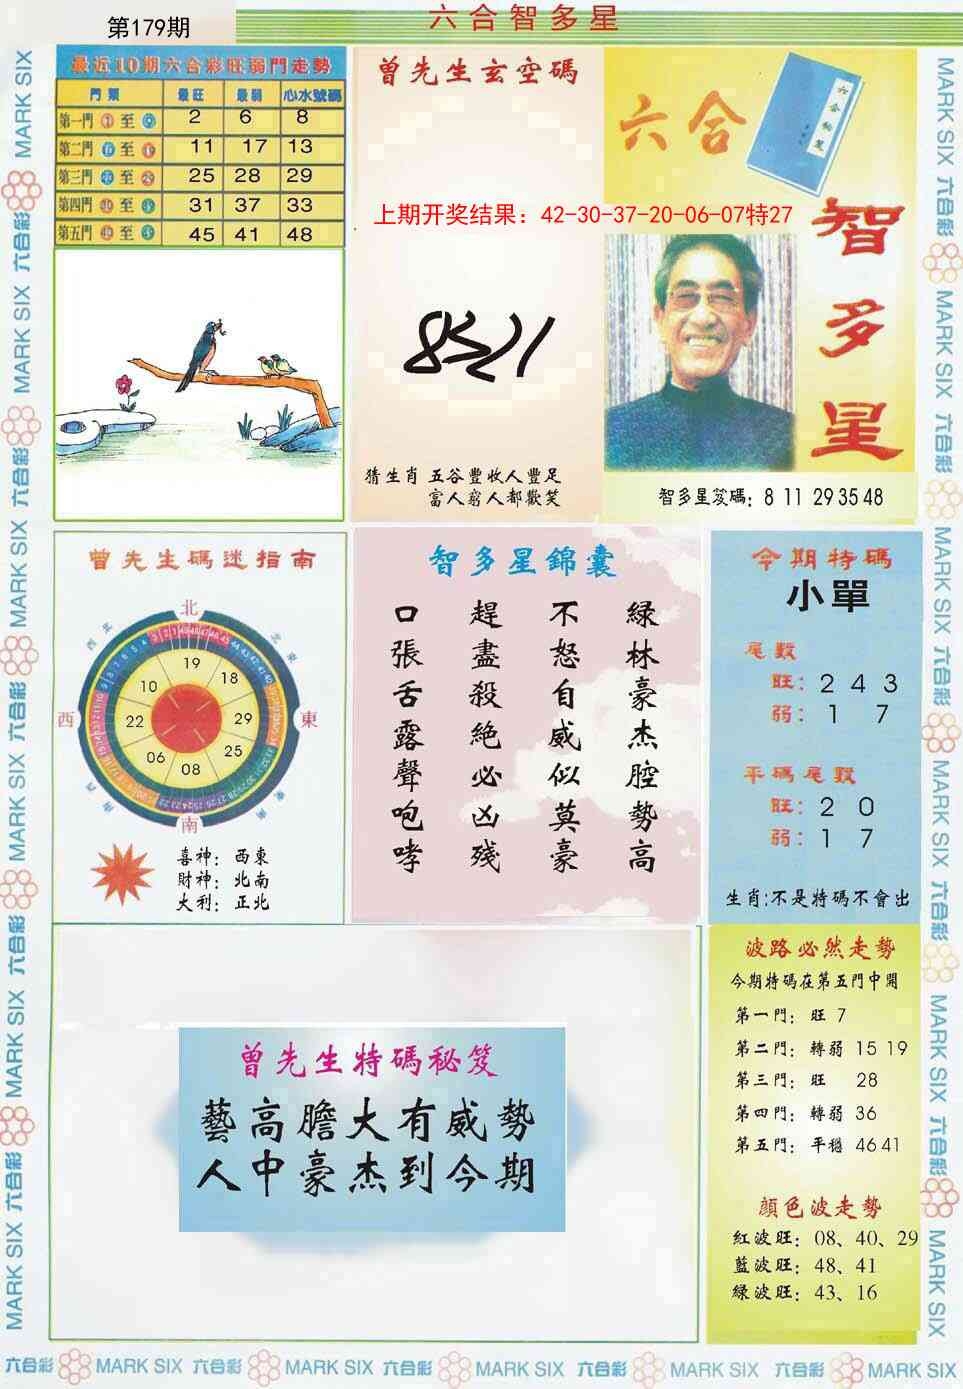 第179期
六合智多星
最近10期六合彩旺弱門走勢
門類 最旺 最弱 心水號碼
第一門 至 2 6 8
第二門 至 11 17 13
第三門 至 25 28 29
第四門 至 31 37 33
第五門 至 45 41 48
曾先生玄空碼
上期开奖结果：42-30-37-20-06-07特27
猜生肖 五谷豐收人豐足
富人窮人都歡笑
六合
智多星
智多星笈碼：8 11 29 35 48
曾先生碼迷指南
北
西北
東北
西
東
西南
東南
南
19
18
29
25
08
06
22
10
喜神：西東
財神：北南
大利：正北
智多星錦囊
綠林豪杰腔勢高
不怒自威似莫豪
趕盡殺絕必凶殘
口張舌露聲咆哮
今期特碼
小單
尾數
旺：2 4 3
弱：1 7
平碼尾數
旺：2 0
弱：1 7
生肖：不是特碼不會出
曾先生特碼秘笈
藝高膽大有威勢
人中豪杰到今期
波路必然走勢
今期特碼在第五門中開
第一門：旺 7
第二門：轉弱 15 19
第三門：旺 28
第四門：轉弱 36
第五門：平穩 46 41
顏色波走勢
紅波旺：08、40、29
藍波旺：48、41
綠波旺：43、16
六合彩 MARK SIX 六合彩 MARK SIX 六合彩 MARK SIX 六合彩 MARK SIX 六合彩 MARK SIX